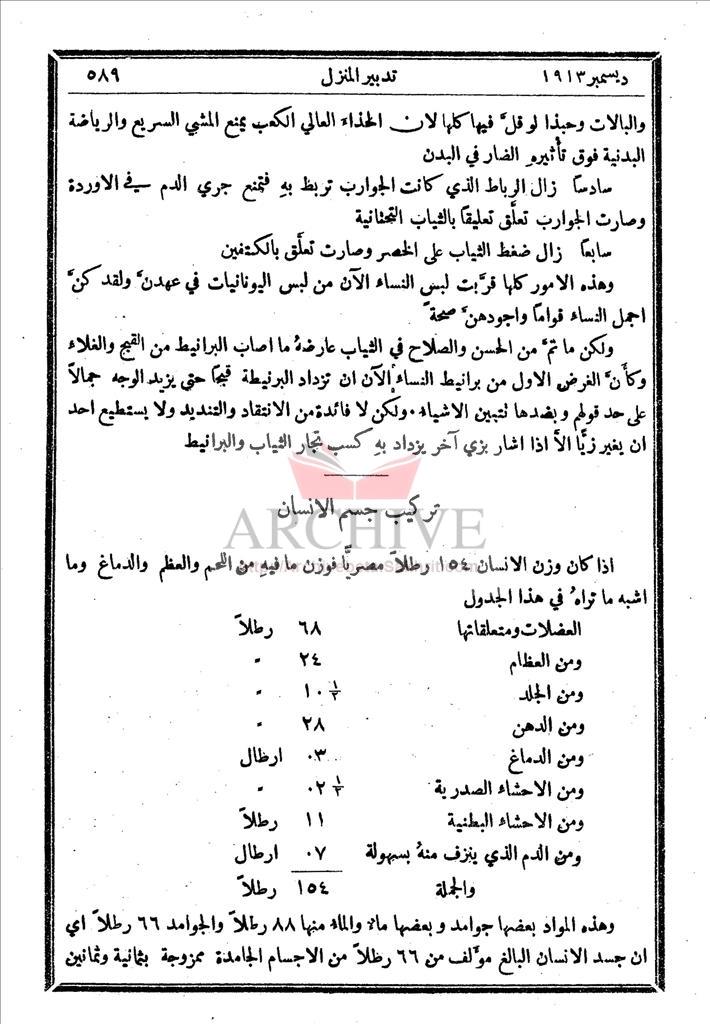 ديسمبر ١٩١٣ تدبير المنزل ٥٨٩
والبالات وحبذا لو قلَّ فيها كلها لان الحذاء العالي الكعب يمنع المشي السريع والرياضة
البدنية فوق تأثيرهِ الضار في البدن
سادساً زال الرباط الذي كانت الجوارب تربط بهِ فتمنع جري الدم في الاوردة
وصارت الجوارب تعلَّق تعليقاً بالثياب التحتانية
سابعاً زال ضغط الثياب على الخصر وصارت تعلَّق بالكتفين
وهذه الامور كلها قرَّبت لبس النساء الآن من لبس اليونانيات في عهدهنَّ ولقد كنَّ
اجمل النساء قواماً واجودهنَّ صحةً
ولكن ما تمَّ من الحسن والصلاح في الثياب عارضهُ ما اصاب البرانيط من القبح والغلاء
وكأَنَّ الغرض الاول من برانيط النساء الآن ان تزداد البرنيطة قبحاً حتى يزيد الوجه جمالاً
على حد قولهم وبضدها تتبين الاشياء . ولكن لا فائدة من الانتقاد والتنديد ولا يستطيع احد
ان يغير زيًّا الاَّ اذا اشار بزي آخر يزداد بهِ كسب تجار الثياب والبرانيط
تركيب جسم الانسان
ARCHIVE
اذا كان وزن الانسان ١٥٤ رطلاً مصريًّا فوزن ما فيهِ من اللحم والعظم والدماغ وما
اشبه ما تراهُ في هذا الجدول
العضلات ومتعلقاتها ٦٨ رطلاً
ومن العظام ٢٤ "
ومن الجلد ١٠ ١/٢ "
ومن الدهن ٢٨ "
ومن الدماغ ٠٣ ارطال
ومن الاحشاء الصدرية ٠٢ ١/٢ "
ومن الاحشاء البطنية ١١ رطلاً
ومن الدم الذي ينزف منهُ بسهولة ٠٧ ارطال
والجملة ١٥٤ رطلاً
وهذه المواد بعضها جوامد وبعضها مالا والماء منها ٨٨ رطلاً والجوامد ٦٦ رطلاً اي
ان جسد الانسان البالغ مؤَلف من ٦٦ رطلاً من الاجسام الجامدة ممزوجة بثمانية وثمانين